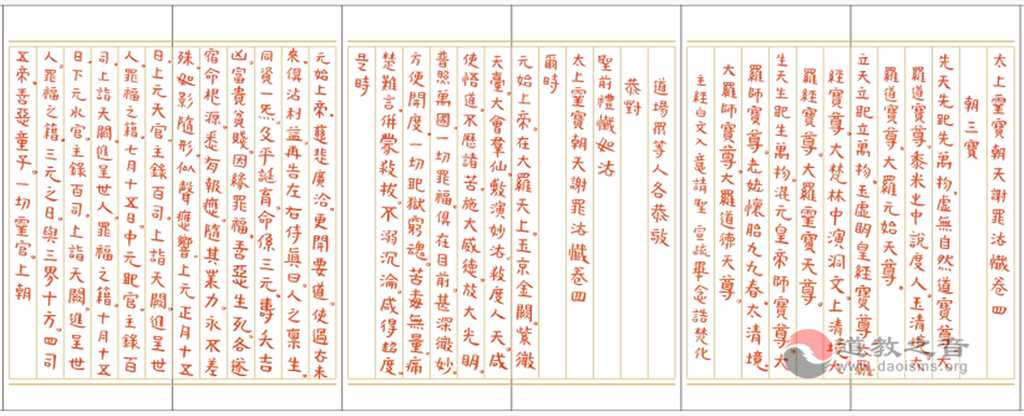 太上靈寶朝天謝罪法懺卷四
朝三寶
先天先地先萬物。虛無自然道寶尊。大
羅道寶尊。黍米之中說度人。玉清境。大
羅道寶尊。大羅元始天尊
立天立地立萬物。玉虛明皇經寶尊。大羅
經寶尊。大梵林中演洞文。上清境。大
羅經寶尊。大羅靈寶天尊
生天生地生萬物。混元皇帝師寶尊。大
羅師寶尊。老姥懷胎九九春。太清境。
大羅師寶尊。大羅道德天尊
主經白文入意請聖 宣疏畢念誥焚化
道場眾等人各恭敬
恭對
聖前禮懺如法
太上靈寶朝天謝罪法懺卷四
爾時
元始上帝。在大羅天上。玉京金闕。紫微
天臺。大會群仙。敷演妙法。救度人天。咸
使悟道。不歷諸苦。施大威德。放大光明。
普照萬國。一切罪福。俱在目前。甚深微妙
方便開度。一切地獄窮魂。苦毒無量。痛
楚難言。併蒙救拔。不溺沉淪。咸得超度。
是時
元始上帝。慈悲廣洽。更開要道。使過去未
來。得沾利益。再告左右侍真曰。人之稟生。
同資一炁。及乎誕育。命係三元。壽夭吉
凶。富貴貧賤。因緣罪福。善惡生死。各逐
宿命根源。悉有報應。隨其業力。永不差
殊。如影隨形。似聲應響。上元正月十五
日。上元天官。主錄百司。上詣天闕。進呈世
人罪福之籍。七月十五日。中元地官。主錄百
司。上詣天闕。進呈世人罪福之籍。十月十五
日。下元水官。主錄百司。上詣天闕。進呈世
人罪福之籍。三元之日。與三界十方。四司
五帝。善惡童子。一切靈官。上朝
道教之音
www.daoisms.org